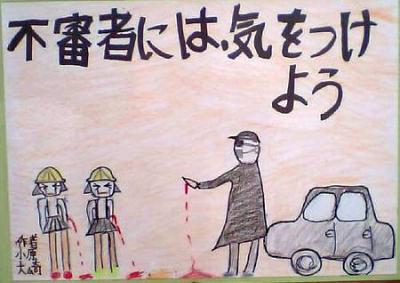 不審者には、気をつけ
よう
作者
小原
大崎